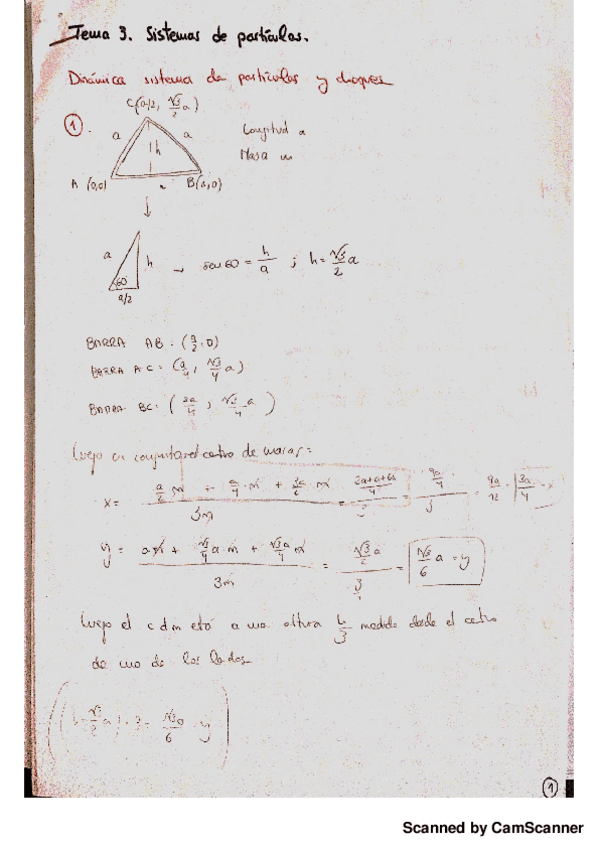 Tema 3. Sistemas de partículas.
Dinámica sistema de partículas y choques
C(a/2, √3/2 a)
① a a Longitud a
h Masa m
A (0,0) a B(a,0)
a h → sen 60 = h/a ; h = √3/2 a
60
a/2
BARRA AB: (a/2, 0)
BARRA AC: (a/4, √3/4 a)
BARRA BC: (3a/4, √3/4 a)
Luego en conjunto el cetro de masas:
x = (a/2 m + a/4 m + 3a/2 m)/3m = = (9a/4)/3 = 9a/12 = 3a/4 = x
y = (√3/4 a m + √3/4 a m)/3m = (√3/2 a)/3 = √3/6 a = y
Luego el cdm está a una altura h/3 medida desde el cetro
de uno de los lados.
√3/2 a √3a/6 = y
1
Scanned by CamScanner